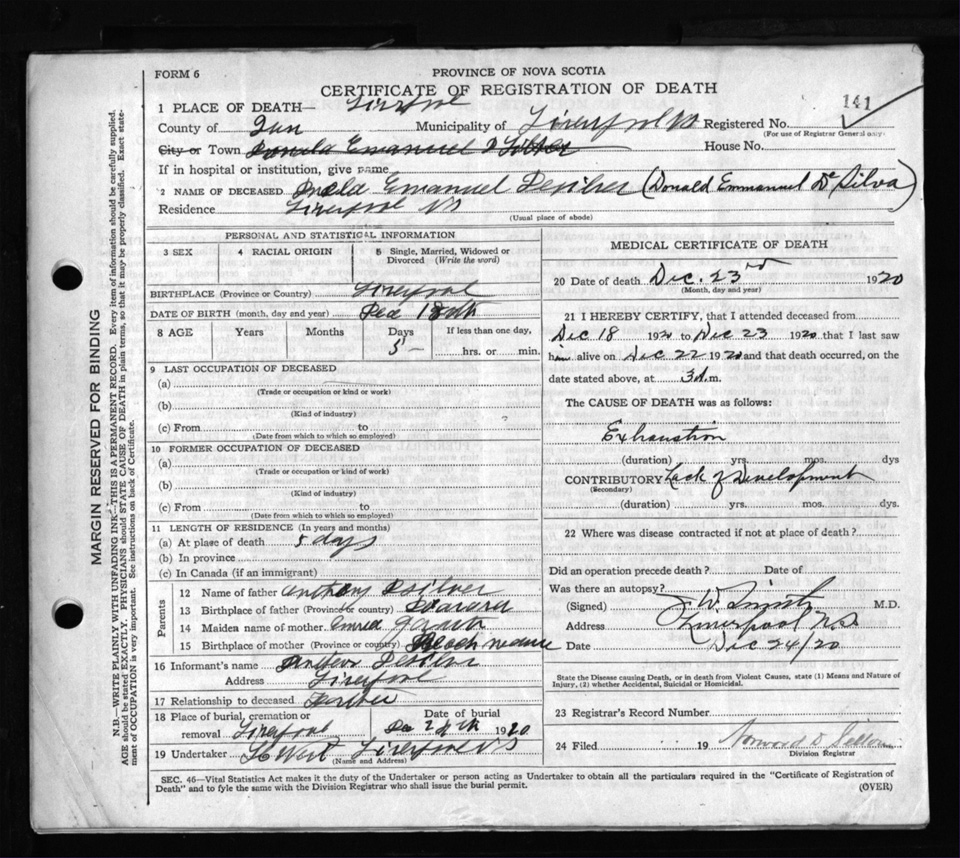 FORM 6
PROVINCE OF NOVA SCOTIA
CERTIFICATE OF REGISTRATION OF DEATH
141
1 PLACE OF DEATH—
County of Municipality of Registered No.
(For use of Registrar General only)
City or Town House No.
If in hospital or institution, give name
2 NAME OF DECEASED Emanuel (Donald Emmanuel De Silva)
Residence Liverpool NS
(Usual place of abode)
PERSONAL AND STATISTICAL INFORMATION
3 SEX 4 RACIAL ORIGIN 5 Single, Married, Widowed or Divorced (Write the word)
BIRTHPLACE (Province or Country) Liverpool
DATE OF BIRTH (month, day and year) Dec 18th
8 AGE Years Months Days If less than one day,
5 — hrs. or min.
9 LAST OCCUPATION OF DECEASED
(a)
(Trade or occupation or kind or work)
(b)
(Kind of industry)
(c) From to
(Date from which to which so employed)
10 FORMER OCCUPATION OF DECEASED
(a)
(Trade or occupation or kind of work)
(b)
(Kind of industry)
(c) From to
(Date from which to which so employed)
11 LENGTH OF RESIDENCE (In years and months)
(a) At place of death 5 days
(b) In province
(c) In Canada (if an immigrant)
Parents
12 Name of father Anthony
13 Birthplace of father (Province or country)
14 Maiden name of mother
15 Birthplace of mother (Province or country)
16 Informant's name
Address Liverpool
17 Relationship to deceased Father
18 Place of burial, cremation or removal Liverpool
Date of burial Dec 24th 1920
19 Undertaker Liverpool NS
(Name and Address)
MEDICAL CERTIFICATE OF DEATH
20 Date of death Dec. 23rd 1920
(Month, day and year)
21 I HEREBY CERTIFY, that I attended deceased from
Dec 18 1920 to Dec 23 1920 that I last saw
him alive on Dec 22 1920 and that death occurred, on the
date stated above, at 3 A.m.
The CAUSE OF DEATH was as follows:
Exhaustion
(duration) yrs. mos. dys
CONTRIBUTORY Lack of Development
(Secondary)
(duration) yrs. mos. dys.
22 Where was disease contracted if not at place of death?
Did an operation precede death? Date of
Was there an autopsy?
(Signed) J. W. Smith M.D.
Address Liverpool N.S.
Date Dec 24/20
State the Disease causing Death, or in death from Violent Causes, state (1) Means and Nature of
Injury, (2) whether Accidental, Suicidal or Homicidal.
23 Registrar's Record Number
24 Filed 19
Division Registrar
SEC. 46—Vital Statistics Act makes it the duty of the Undertaker or person acting as Undertaker to obtain all the particulars required in the "Certificate of Registration of
Death" and to fyle the same with the Division Registrar who shall issue the burial permit.
(OVER)
MARGIN RESERVED FOR BINDING
N.B.—WRITE PLAINLY WITH UNFADING INK—THIS IS A PERMANENT RECORD. Every item of information should be carefully supplied.
AGE should be stated EXACTLY. PHYSICIANS should STATE CAUSE OF DEATH in plain terms, so that it may be properly classified. Exact state-
ment of OCCUPATION is very important. See instructions on back of Certificate.